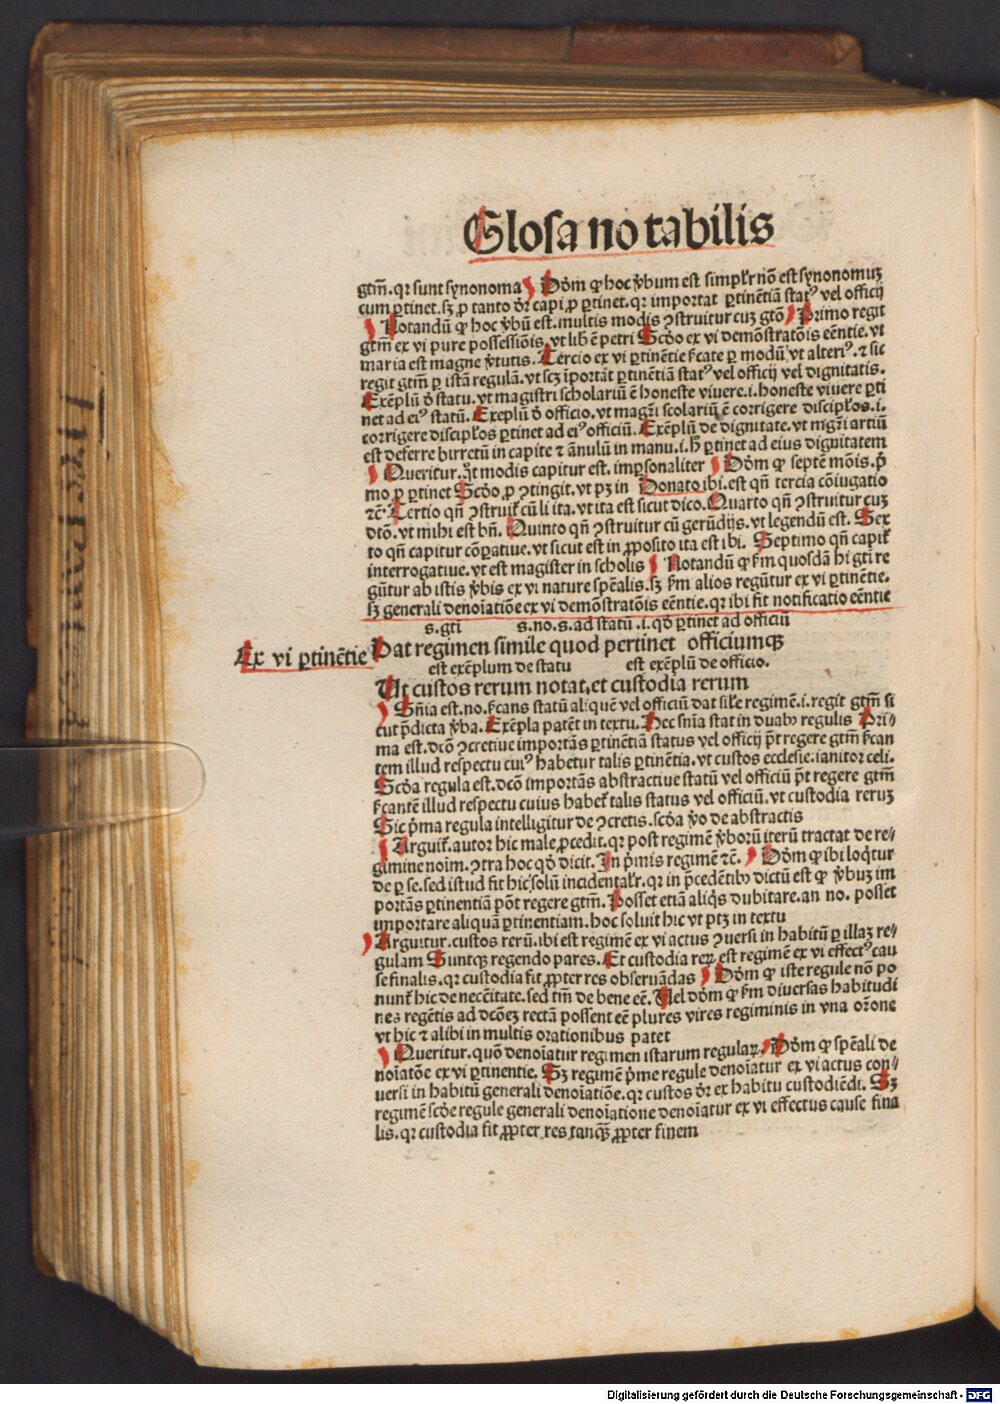 Glosa notabilis
gtm̄. qꝛ sunt synonoma Dōm ꝙ hoc v̄bum est simplr nō est synonomuꝫ
cum ꝑtinet. sꝫ ꝓ tanto dr̄ capi ꝓ ꝑtinet. qꝛ importat ꝑtinētiā statꝰ vel officij
Notandū ꝙ hoc v̄bū est. multis modis ↄstruitur cuꝫ gtō Primo regit
gtm̄ ex vi pure possessiōis. vt lib ē petri Scd̄o ex vi demōstratōis eēntie. vt
maria est magne v̄tutis. Tercio ex vi ꝑtinētie ſcate ꝑ modū vt alteriꝰ. ⁊ sic
regit gtm̄ ꝑ istā regulā. vt scꝫ īportāt ꝑtinētiā statꝰ vel officij vel dignitatis.
Exēplū ō statu. vt magistri scholariū ē honeste viuere. i. honeste viuere ꝑti
net ad eiꝰ statū. Exeplū ō officio. vt magr̄i scolariū ē corrigere disciplos. i.
corrigere disciplos ꝑtinet ad eiꝰ officiū. Exēplū de dignitate. vt mgr̄i artiū
est deferre birretū in capite ⁊ ānulū in manu. i. h̄ ꝑtinet ad eius dignitatem
Queritur. qͥt modis capitur est. imꝑsonaliter Dōm ꝙ septē mōis. p̄
mo ꝓ ꝑtinet Scd̄o ꝓ ↄtingit. vt pꝫ in Donato ibi. est qn̄ tercia cōiugatio
⁊c̄. Tertio qn̄ ↄstruit̄ cū li ita. vt ita est sicut dico. Quarto qn̄ ↄstruitur cuꝫ
dtō. vt mihi est bn̄. Quinto qn̄ ↄstruitur cū gerūdijs. vt legendū est. Sex
to qn̄ capitur cōꝑatiue. vt sicut est in ꝓposito ita est ibi. Septimo qn̄ capit̄
interrogatiue. vt est magister in scholis Notandū ꝙ ſm quosdā hi gti re
gūtur ab istis v̄bis ex vi nature spēalis. sꝫ ſm alios regūtur ex vi ꝑtinētie.
sꝫ generali denoīatiōe ex vi demōstratōis eēntie. qꝛ ibi fit notificatio eēntie
s. gti s. no. s. ad statū. i. qd̄ ꝑtinet ad officiū
Ex vi ꝑtinētie Dat regimen simile quod pertinet officiumqꝫ
est exēplum de statu est exēplū de officio.
Ut custos rerum notat, et custodia rerum
Sn̄ia est. no. ſcans statū aliquē vel officiū dat sile regimē. i. regit gtm̄ si
cut p̄dicta v̄ba. Exēpla patēt in textu. Hec sn̄ia stat in duabꝫ regulis Pri⸗
ma est. dcō ↄcretiue importās ꝑtinētiā status vel officij pt̄ regere gtm̄ ſcan
tem illud respectu cuiꝰ habetur talis ꝑtinētia. vt custos ecclesie. ianitor celi.
Scd̄a regula est. dcō importās abstractiue statū vel officiū pt̄ regere gtm̄
ſcantē illud respectu cuius habet̄ talis status vel officiū. vt custodia reruꝫ
Sic p̄ma regula intelligitur de ↄcretis. scd̄a v̄o de abstractis
Arguit̄. autor hic male ꝓcedit. qꝛ post regimē v̄borū iterū tractat de re⸗
gimine noim̄. ↄtra hoc qd̄ dicit. In p̄mis regimē ⁊c̄. Dōm ꝙ ibi loq̄tur
de ꝑ se. sed istud fit hic solū incidentalr. qꝛ in p̄cedētibꝫ dictū est ꝙ v̄buꝫ im
portās ꝑtinentiā pōt regere gtm̄. Posset etiā aliqͥs dubitare. an no. posset
importare aliquā ꝑtinentiam. hoc soluit hic vt ptꝫ in textu
Arguitur. custos rerū. ibi est regimē ex vi actus ↄuersi in habitū ꝑ illaꝫ re⸗
gulam Suntqꝫ regendo pares. Et custodia reꝝ est regimē ex vi effectꝰ cau
se finalis. qꝛ custodia fit ꝓpter res obseruādas Dōm ꝙ iste regule nō po
nunt̄ hic de necēitate. sed tm̄ de bene eē. Uel dōm ꝙ ſm diuersas habitudi
nes regētis ad dcōeꝫ rectā possent eē plures vires regiminis in vna or̄one
vt hic ⁊ alibi in multis orationibus patet
Queritur. quō denoīatur regimen istarum regulaꝝ. Dōm ꝙ spēali de
noīatōe ex vi ꝑtinentie. Sꝫ regimē p̄me regule denoīatur ex vi actus con⸗
uersi in habitū generali denoīatiōe. qꝛ custos dr̄ ex habitu custodiēdi. Sꝫ
regimē scd̄e regule generali denoīatione denoīatur ex vi effectus cause fina
lis. qꝛ custodia fit ꝓpter res tanqꝫ ꝓpter finem
Digitalisierung gefördert durch die Deutsche Forschungsgemeinschaft - DFG